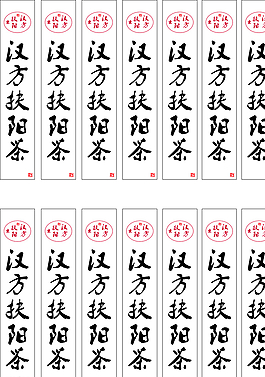 汉方扶阳茶
汉方扶阳茶
汉方扶阳茶
汉方扶阳茶
汉方扶阳茶
汉方扶阳茶
汉方扶阳茶
汉方扶阳茶
汉方扶阳茶
汉方扶阳茶
汉方扶阳茶
汉方扶阳茶
汉方扶阳茶
汉方扶阳茶